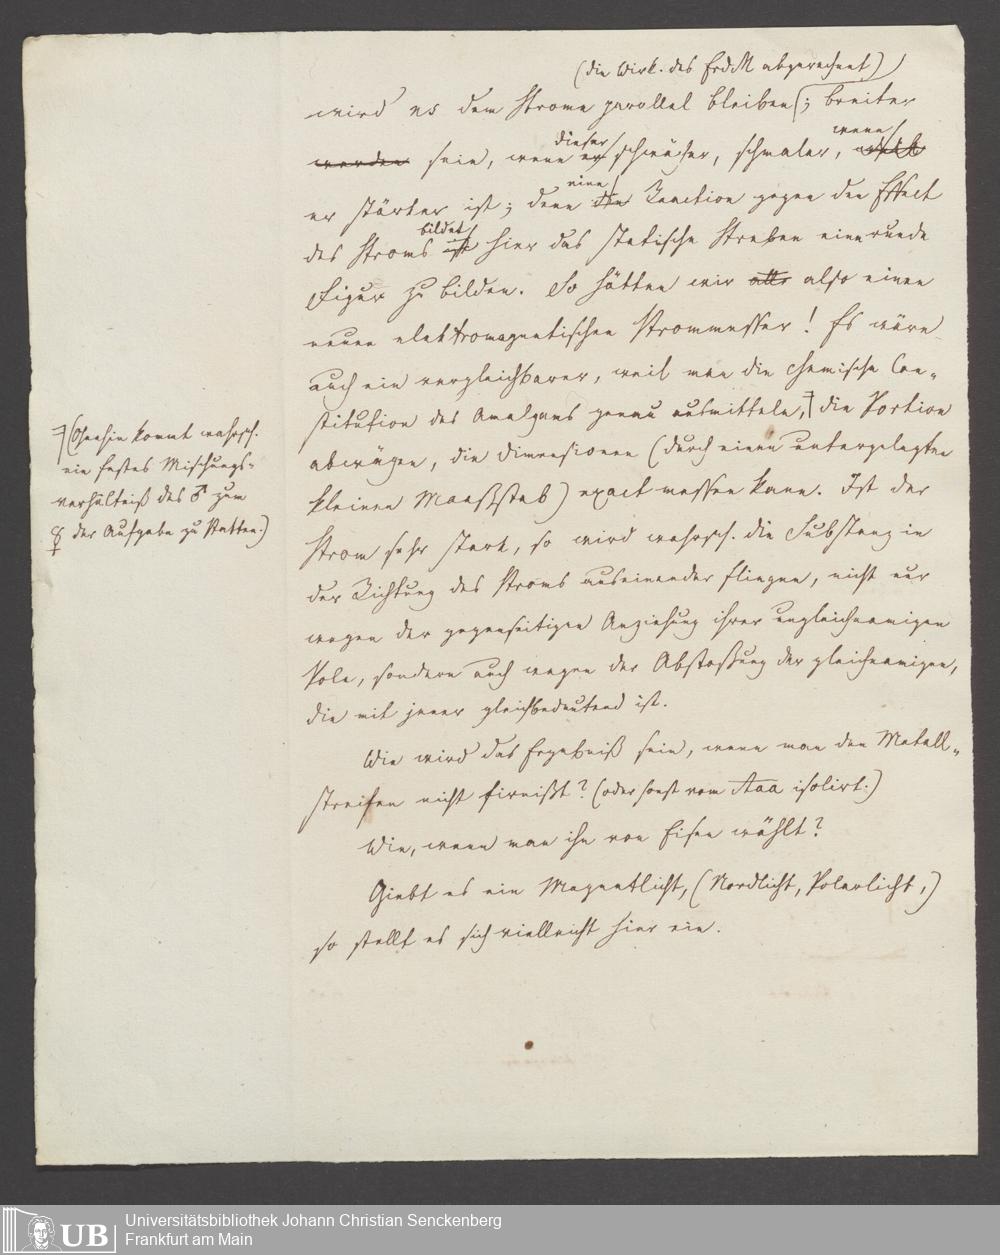 (die Wirk. des ErdM abgerechnet)
wird es dem Strome parallel bleiben; breiter
werden sein, wenn er dieser schwächer, schmaler, wenn
er stärker ist; denn die eine Reaction gegen den Effect
des Stroms ist bildet hier das statische Streben eine runde
Figur zu bilden. So hätten wir also einen
neuen elektromagnetischen Strommesser! Es wäre
auch ein vergleichbarer, weil man die chemische Con-
stitution des Amalgams genau ausmitteln, die Portion
abwägen, die Dimensionen (durch einen untergelegten
kleinen Maaßstab) exact messen kann. Ist der
Strom sehr stark, so wird wahrsch. die Substanz in
der Richtung des Stroms auseinander fliegen, nicht nur
wegen der gegenseitigen Anziehung ihrer ungleichnamigen
Pole, sondern auch wegen der Abstoßung der gleichnamigen,
die mit jener gleichbedeutend ist.
Wie wird das Ergebniß sein, wenn man den Metall-
streifen nicht firnißt? (oder sonst vom Aaa isolirt.)
Wie, wenn man ihn von Eisen wählt?
Giebt es ein Magnetlicht, (Nordlicht, Polarlicht,)
so stellt es sich vielleicht hier ein.
(Ohnehin kommt wahrsch.
ein festes Mischungs-
verhältniß des ♂ zum
☿ der Aufgabe zu Statten.)
UB
Universitätsbibliothek Johann Christian Senckenberg
Frankfurt am Main